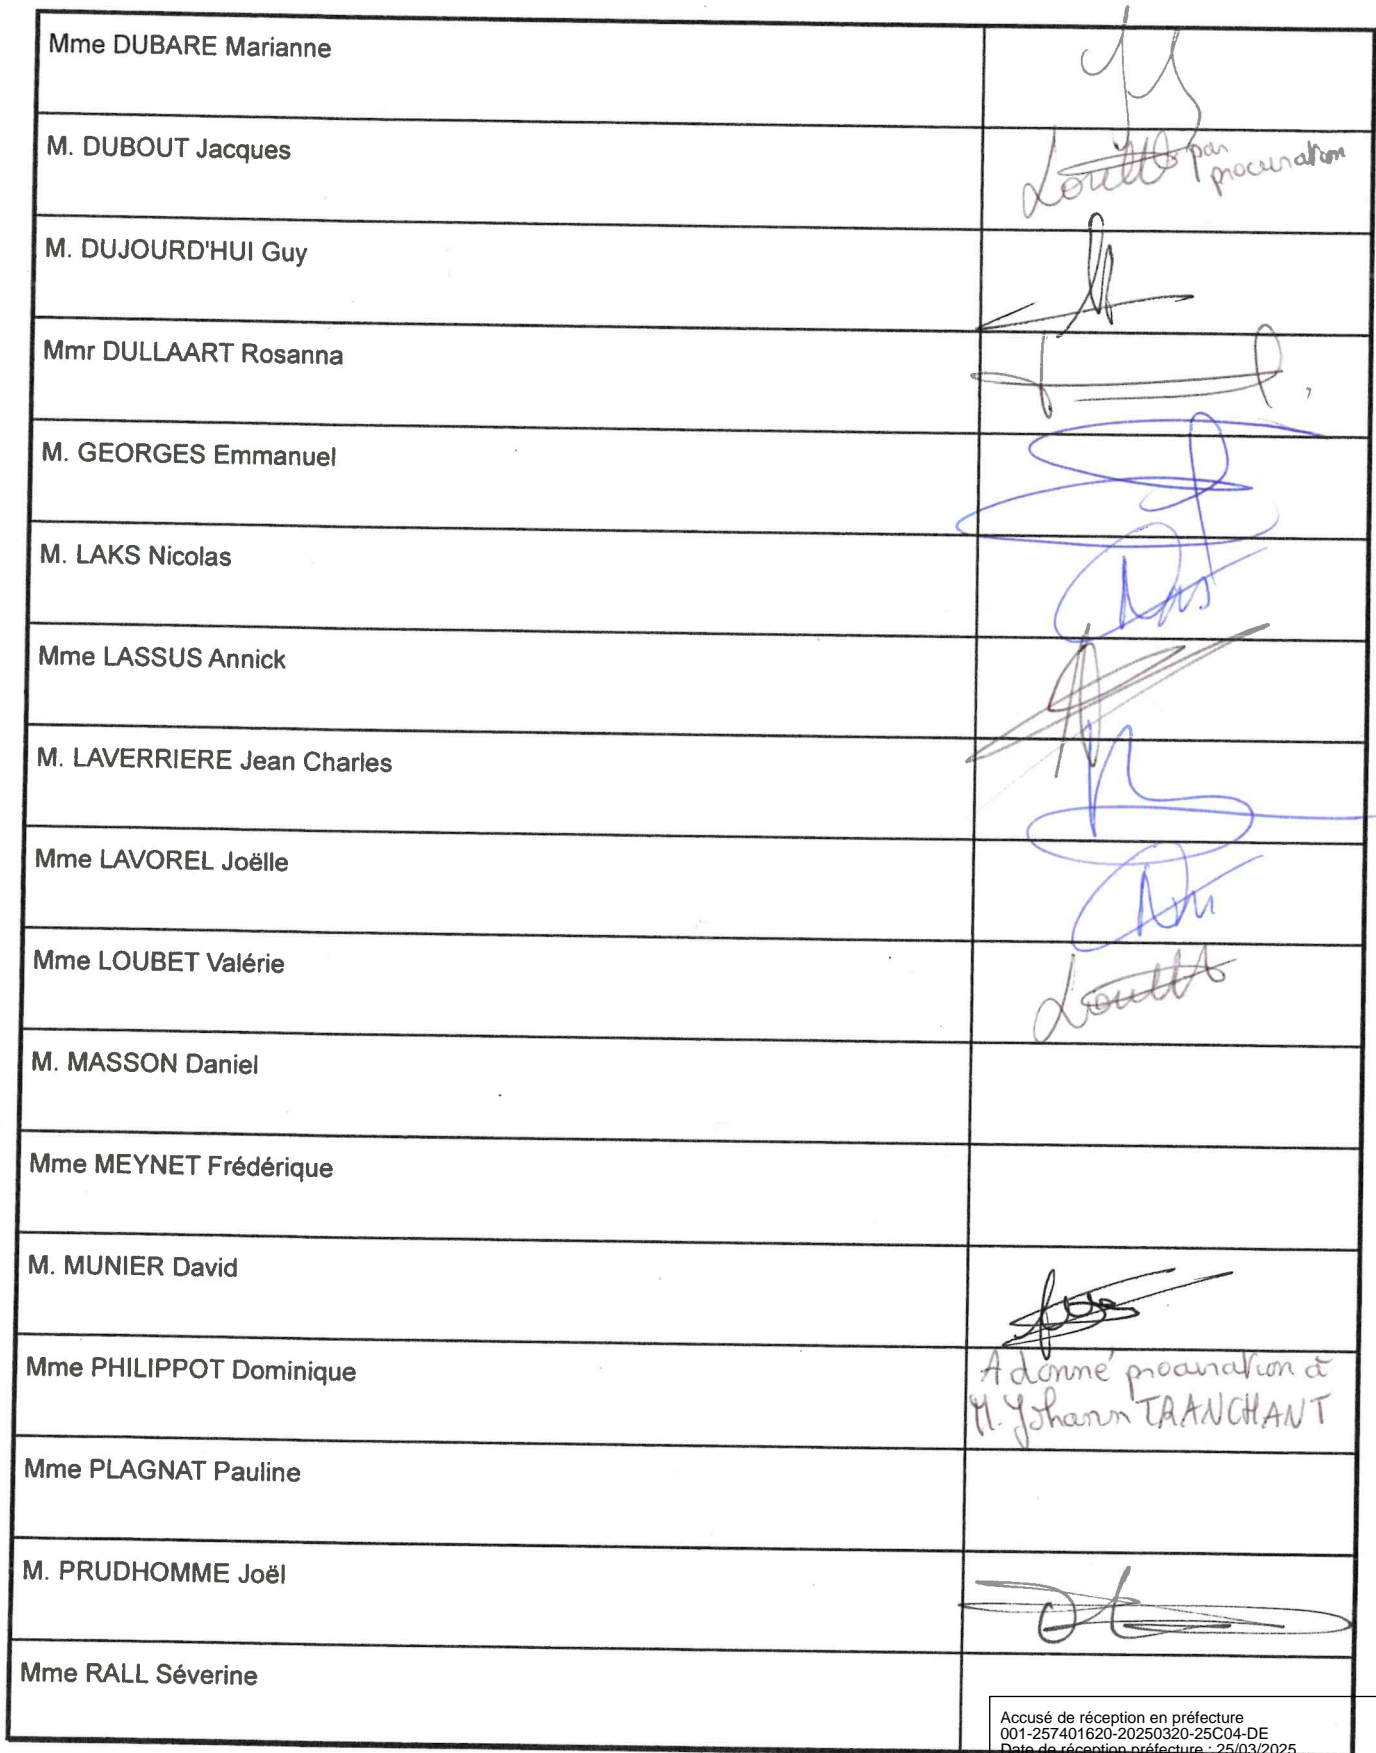 Mme DUBARE Marianne
M. DUBOUT Jacques
par
procuration
M. DUJOURD'HUI Guy
Mmr DULLAART Rosanna
M. GEORGES Emmanuel
M. LAKS Nicolas
Mme LASSUS Annick
M. LAVERRIERE Jean Charles
Mme LAVOREL Joëlle
Mme LOUBET Valérie
M. MASSON Daniel
Mme MEYNET Frédérique
M. MUNIER David
Mme PHILIPPOT Dominique
A donné procuration à
M. Johann TRANCHANT
Mme PLAGNAT Pauline
M. PRUDHOMME Joël
Mme RALL Séverine
Accusé de réception en préfecture
001-257401620-20250320-25C04-DE
Date de réception préfecture : 25/03/2025